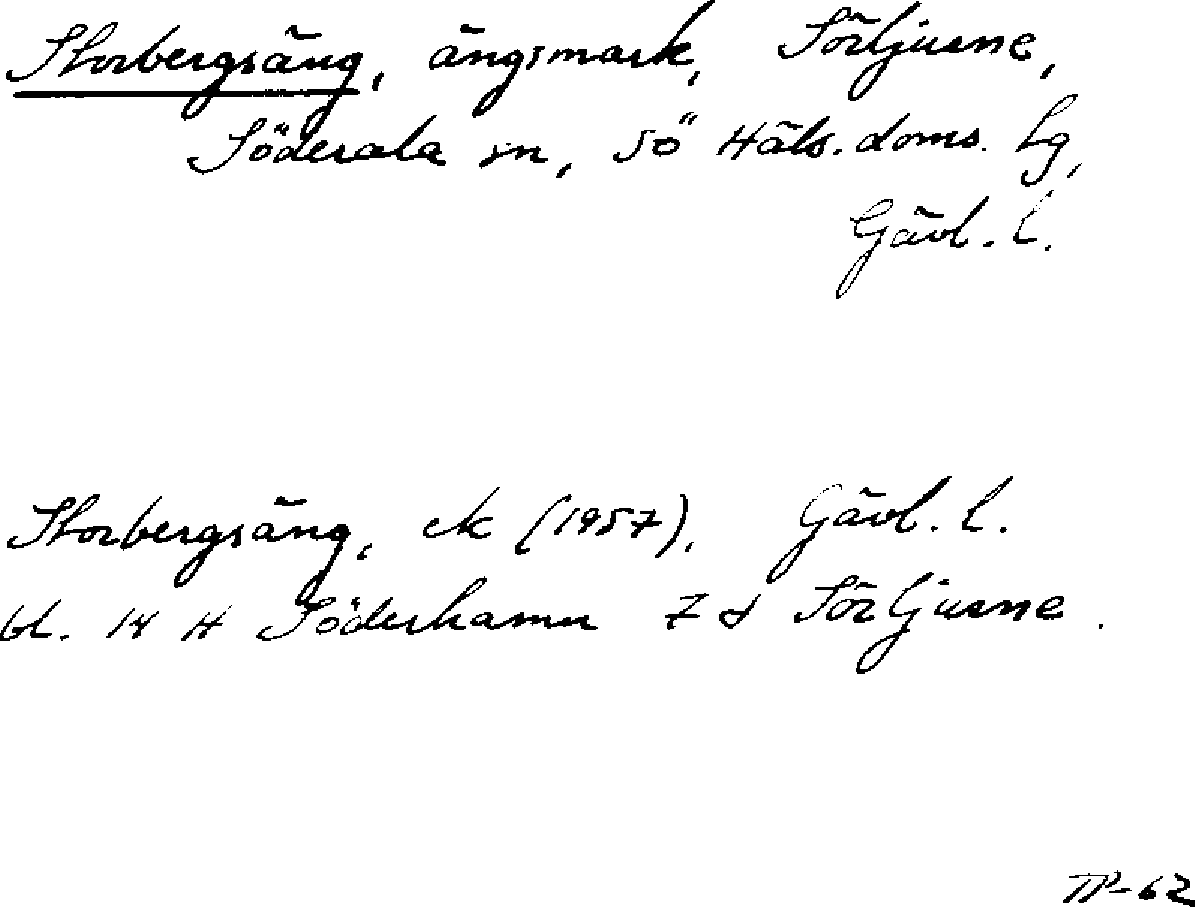 Storbergsäng, ängsmark, Sörljusne,
Söderala sn, Sö Häls. doms. lg,
Gävl. l.
Storbergsäng, ek (1957), Gävl. l.
bl. 14 H Söderhamn 7 d Sörljusne.
TP-62